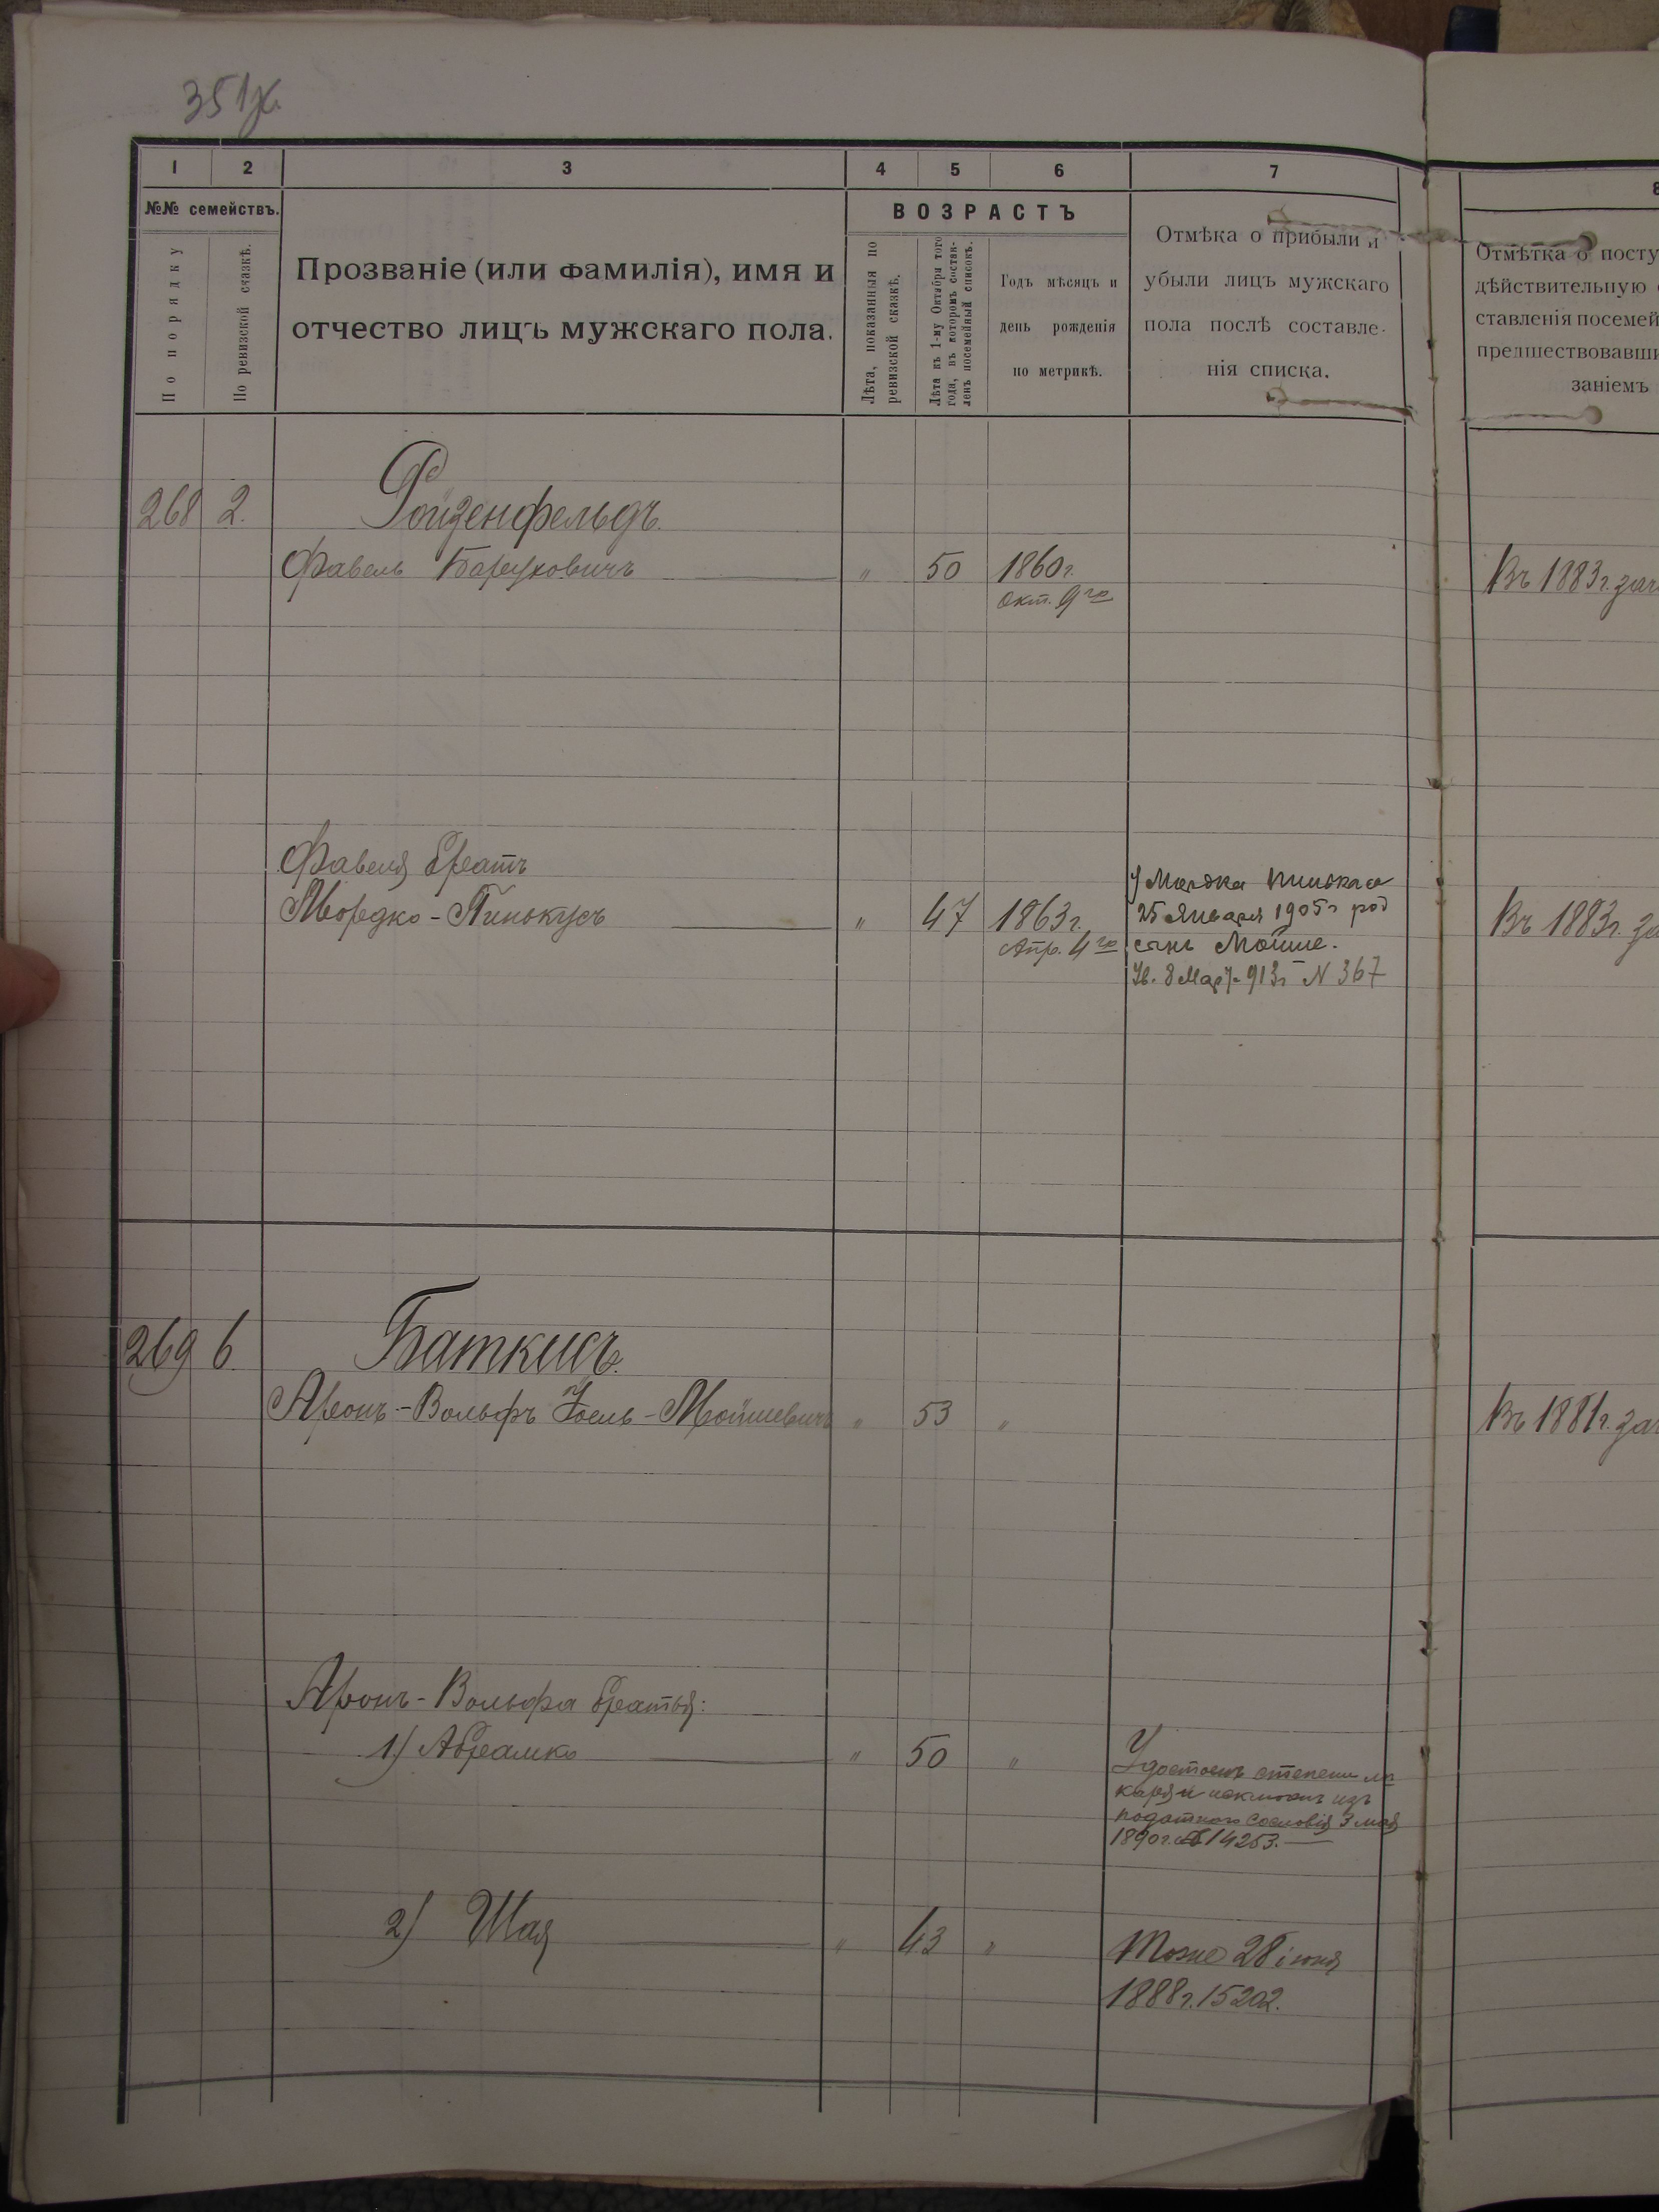 351
1 2 3 4 5 6 7 8
№№ семействъ.
По порядку
По ревизской сказкѣ.
Прозваніе (или фамилія), имя и
отчество лицъ мужскаго пола.
ВОЗРАСТЪ
Лѣта, показанныя по
ревизской сказкѣ.
Лѣта къ 1-му Октября того
года, въ которомъ состав-
ленъ посемейный списокъ.
Годъ мѣсяцъ и
день рожденія
по метрикѣ.
Отмѣка о прибыли и
убыли лицъ мужскаго
пола послѣ составле-
нія списка.
Отмѣтка о посту
дѣйствительную
ставленія посемей
предшествовавши
заніемъ
268 2. Ройзенфельдъ.
Фавель Баруковичъ " 50 1860г. Въ 1883г. зач
Окт. 9го
Фавеля братъ
Мордко-Пинькусъ " 47 1863г. Въ 1883г. за
Апр. 4го
У Мордка Пинькаса
25 Января 1905г род
сынъ Мойше.
Ув. 8 Мар. 913г N 367
269 6 Баткисъ.
Аронъ-Вольфъ Іоель-Мойшевичъ " 53 " Въ 1881г. зач
Аронъ-Вольфа братья:
1) Абрамко " 50 "
Удостоенъ степени лѣ
каря и исключенъ изъ
податного сословія 3 мая
1890г. № 14253.
2) Шая " 43 "
Тоже 28 іюня
1888г. 15202.